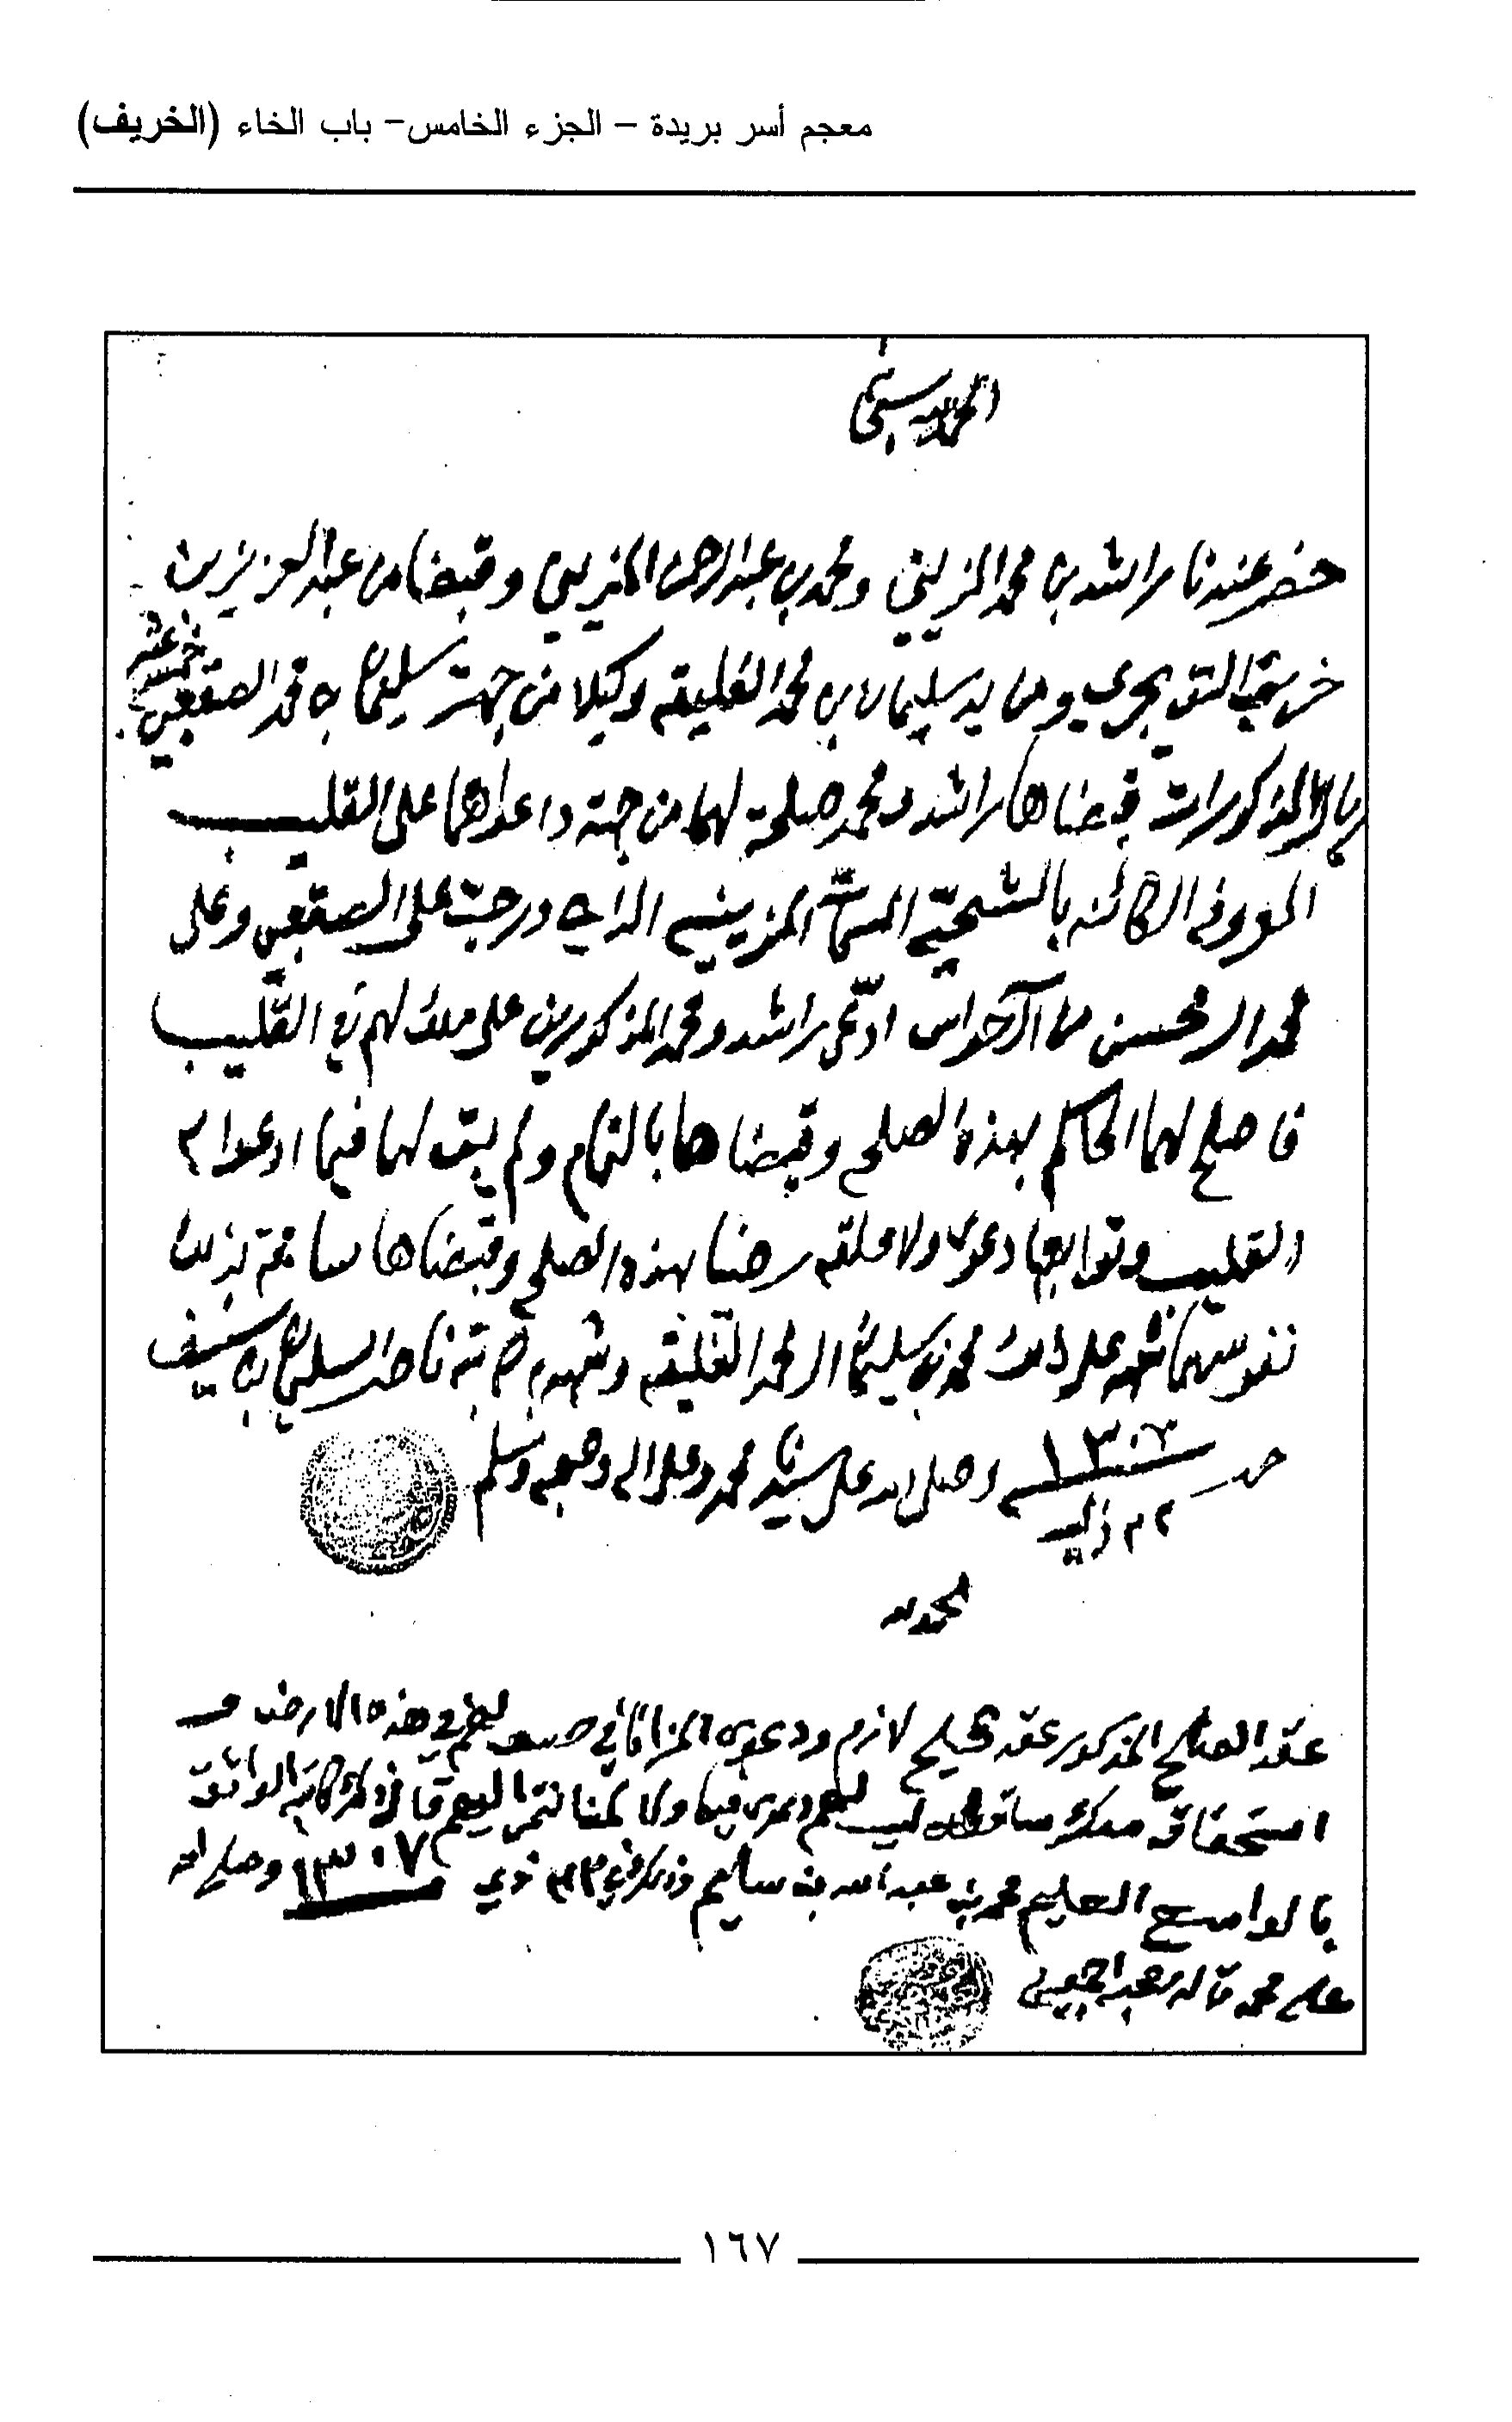 معجم أسر بريدة – الجزء الخامس– باب الخاء (الخريف)
الحمد لله سبحانه
حضر عندنا راشد بن محمد المزيني ومحمد بن عبدالرحمن المزيني وقبضا من عبدالعزيز بن
التويجري ومن يد سليمان بن محمد وكيلا من جهت سليمان بن محمد الصقعبي خمسة عشر
ريال المذكورات قبضاها راشد ومحمد صلحة لهما من جهة دعواهما على القليب
المعروف الكائنه بالشحيّة المسمّات المزينيه الذي درجت على الصقعبي وعلى
محمد المحسن من ادعى راشد ومحمد المذكورين على ملك لهم في القليب
فاصلح لهما الحاكم بهذه الصلح وقبضاها بالتمام ولم يبق لهما فيما ادعوا من
القليب وتوابعها دعوى ولا علقه رضيا بهذه الصلح وقبضاها سامحة بذلك
نفوسهما شهد على ذلك محمد بن سليمان وشهد به كاتبه ناصر السليمان بن سيف
حرر ١٣٠٣ وصلى الله على سيدنا محمد وعلى اله وصحبه وسلم
الحمد لله
عقد الصلح المذكور عقد صحيح لازم ودعوى في هذه الارض
استحقاق ساقط ليس لهم دعوى فيها ولا قال ذلك كاتبه الواثق
بالواسع العليم محمد بن عبدالله بن سليم وذلك في ١٣٠٧ وصلى الله
على محمد واله وصحبه اجمعين
١٦٧